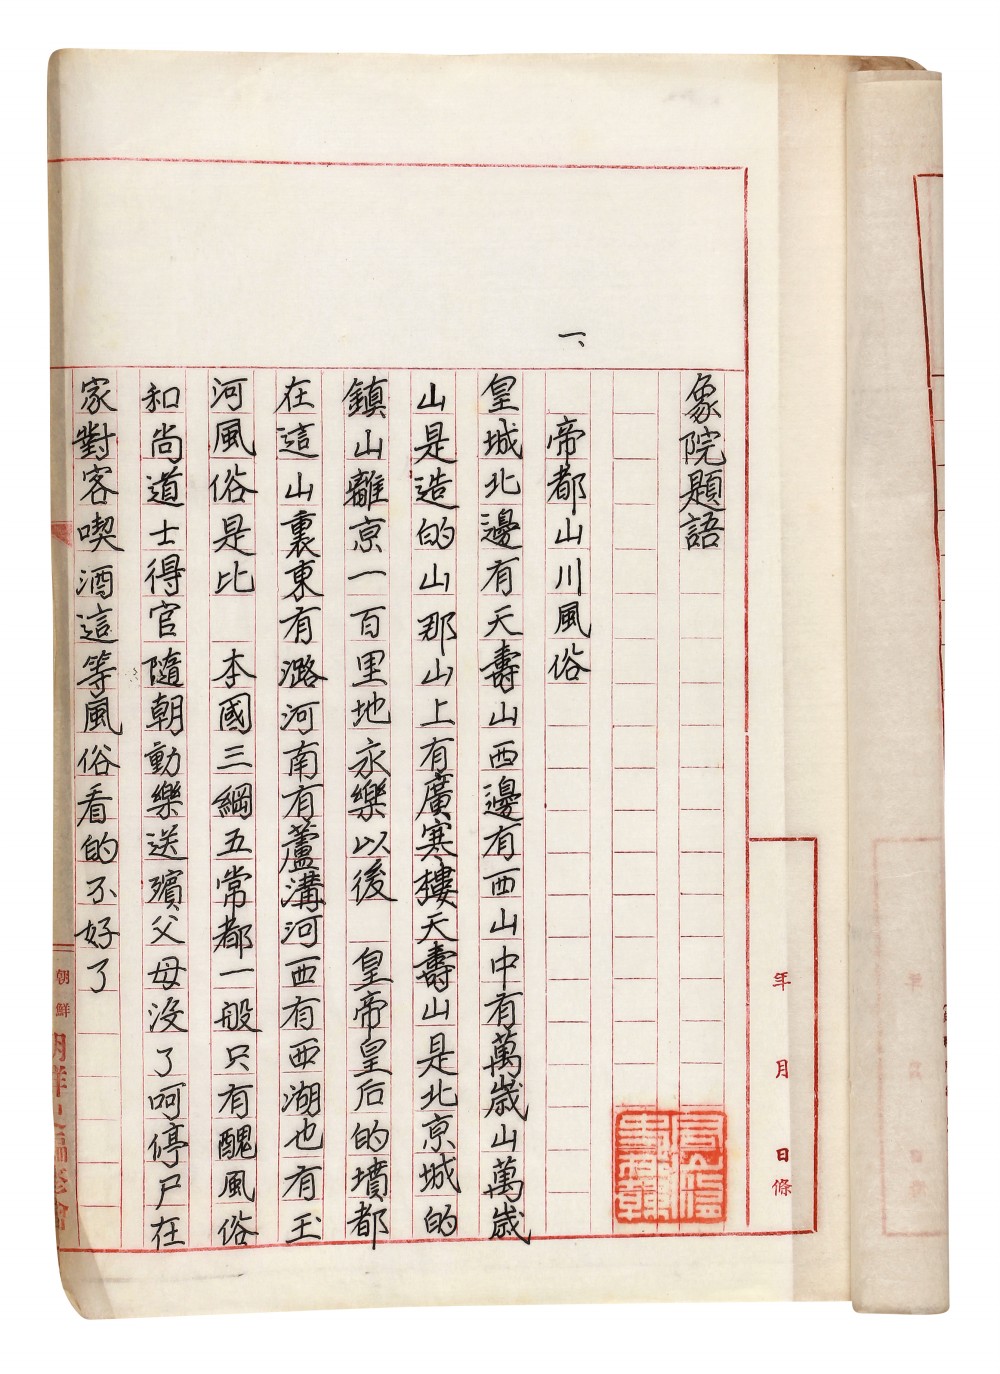 象院題語
一、
帝都山川風俗
皇城北邊有天壽山西邊有西山中有萬歲山萬歲
山是造的山那山上有廣寒樓天壽山是北京城的
鎮山離京一百里地永樂以後　皇帝皇后的墳都
在這山裏東有潞河南有蘆溝河西有西湖也有玉
河風俗是比　本國三綱五常都一般只有醜風俗
和尚道士得官隨朝動樂送殯父母沒了呵停尸在
家對客喫酒這等風俗看的不好了
年　月　日條
朝鮮